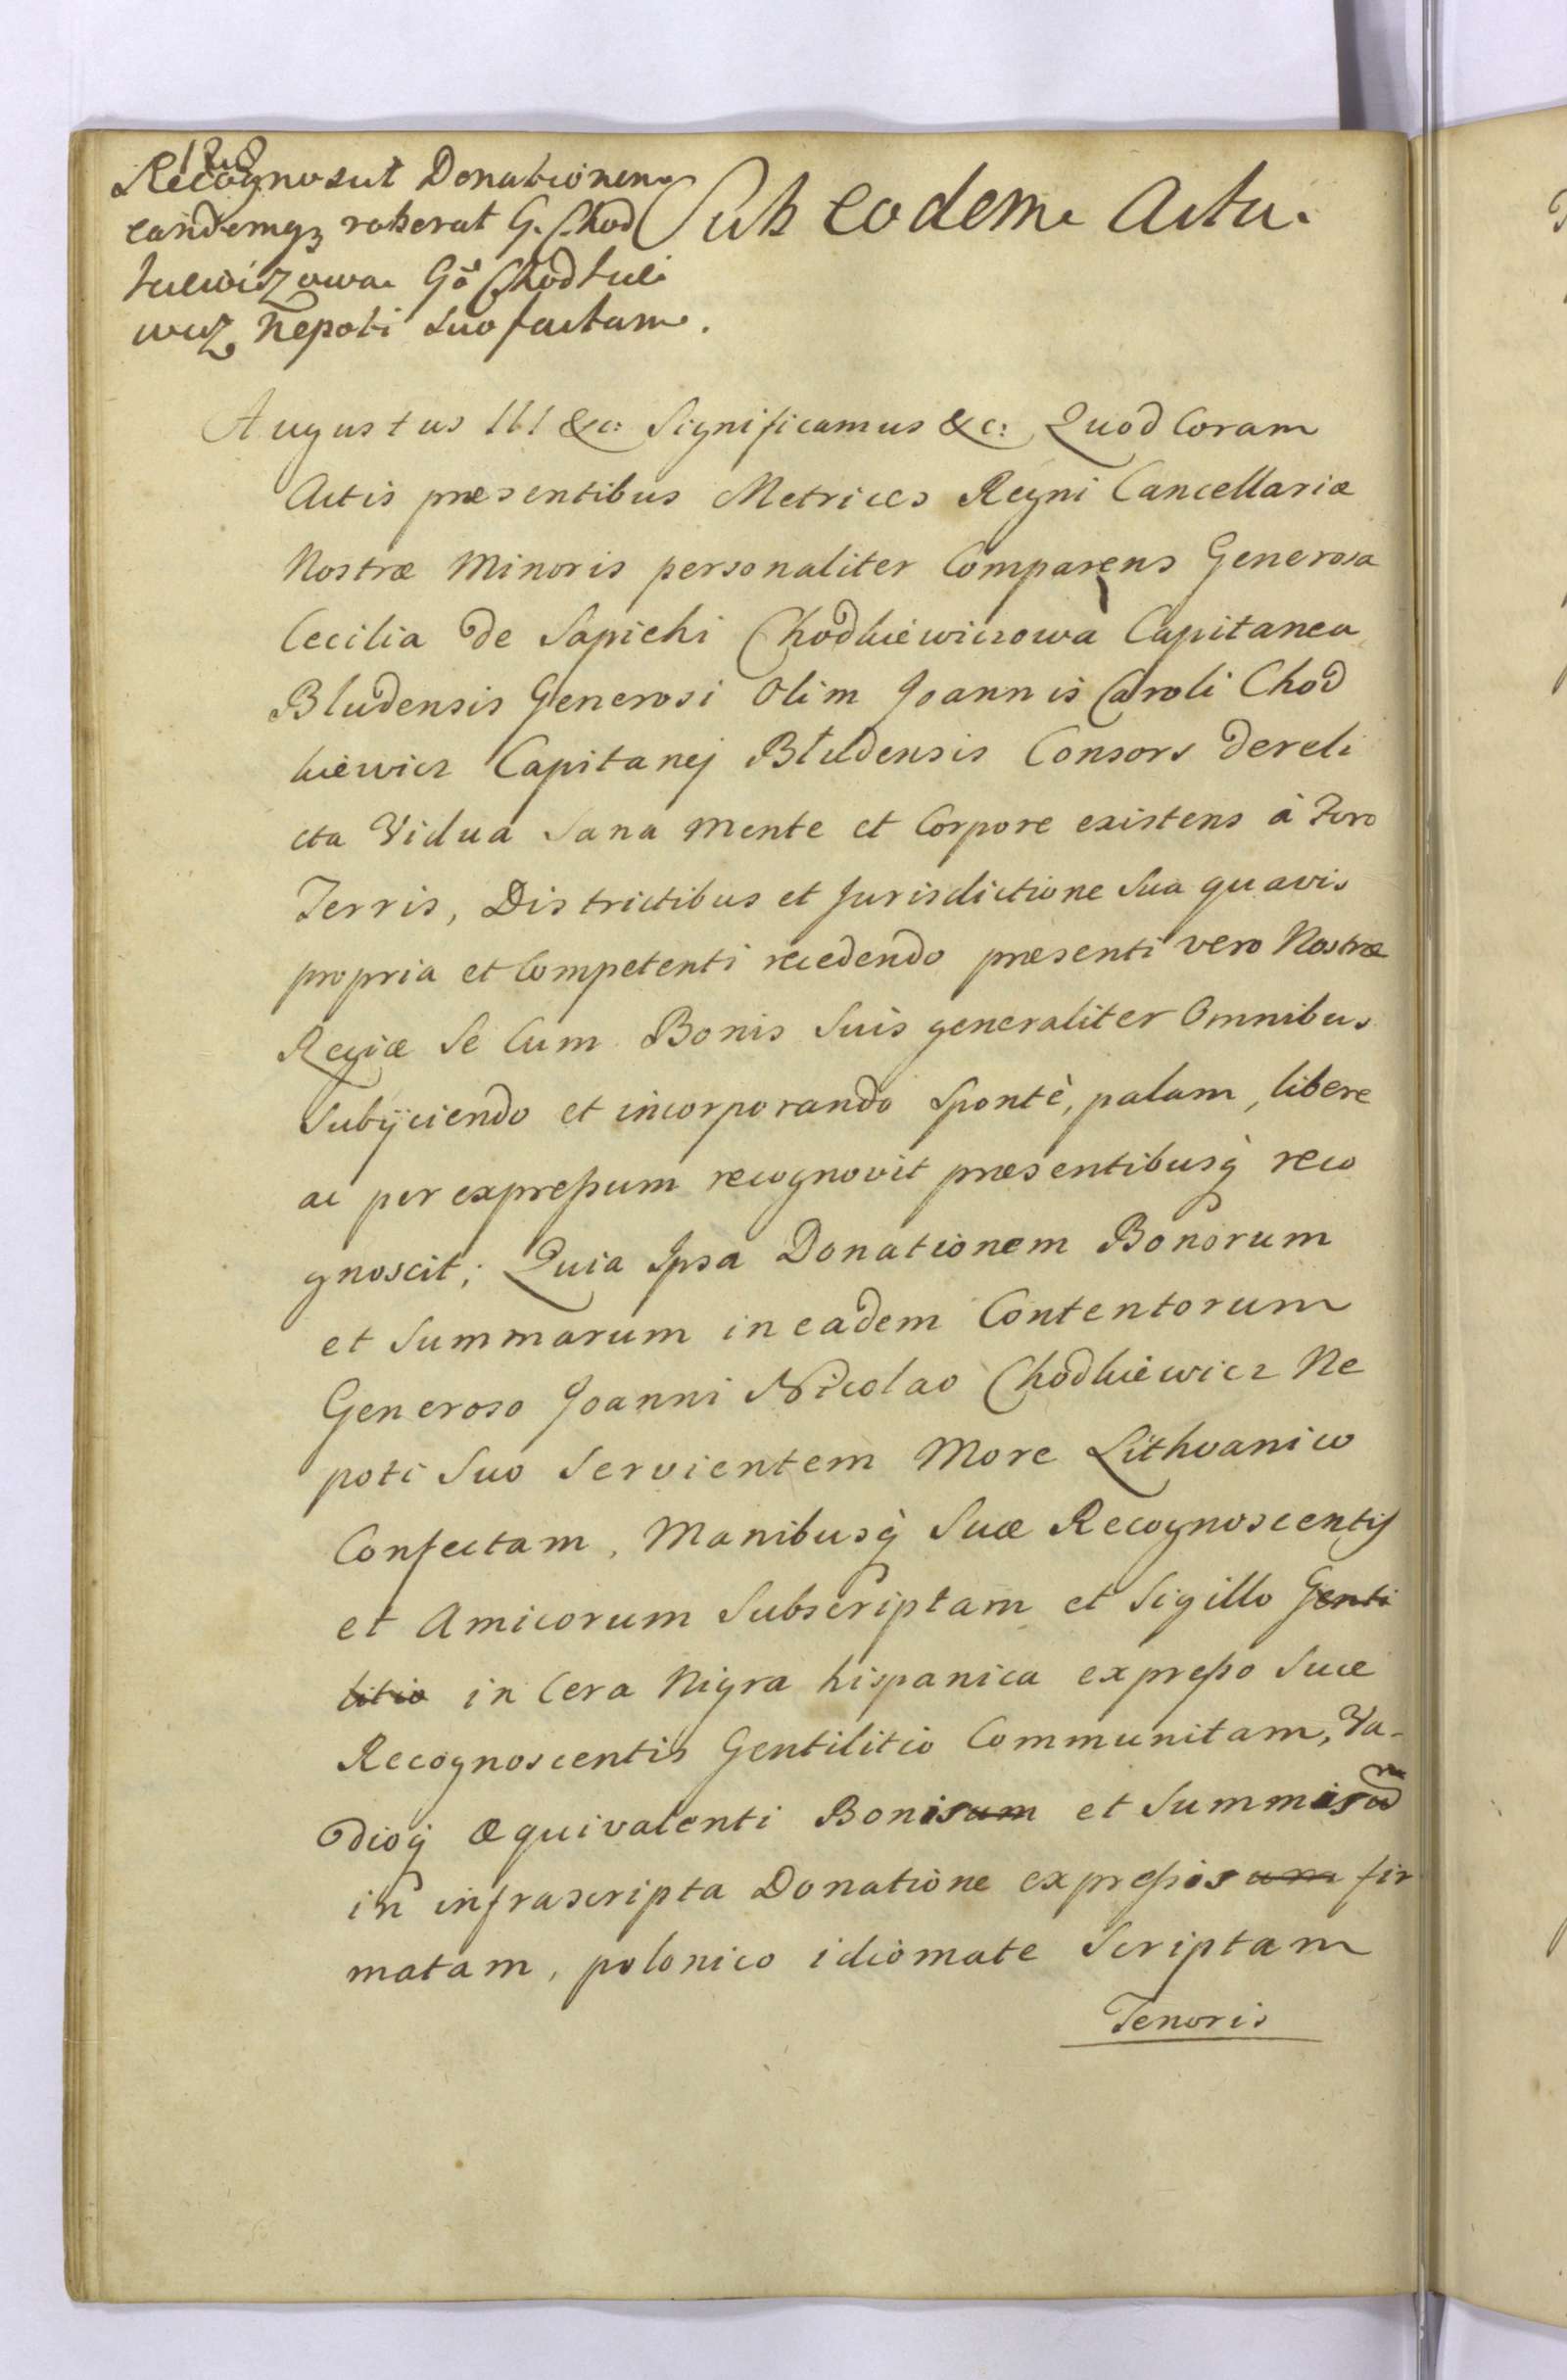 128
Recognoscit Donationem
eandemqȝ roberat G. Chod
kiewiczowa Gō Chodkie
wicz Nepoti suo factam.
Sub eodem Actu.
Augustus III &c: Significamus &c: Quod Coram
Actis præsentibus Metrices Regni Cancellariæ
Nostræ Minoris personaliter Comparens Generosa
Cecilia de Sapiehi Chodkiewiczowa Capitanea
Bludensis Generosi Olim Joannis Caroli Chod
kiewicz Capitanej Błudensis Consors dereli
cta Vidua Sana mente et Corpore existens à Foro
Terris, Districtibus et Jurisdictione Sua quavis
propria et Competenti recedendo præsenti vero Nostræ
Regiæ Se Cum Bonis Suis generaliter Omnibus
Subijciendo et incorporando Spontè, palam, libere
ac per expreßum recognovit præsentibusq̀ reco
gnoscit; Quia Ipsa Donationem Bonorum
et Summarum in eadem Contentorum
Generoso Joanni Nicolao Chodkiewicz Ne
poti Suo Servientem More Lithvanico
Confectam, Manibusq̀ Suæ Recognoscentis
et Amicorum Subscriptam et Sigillo Genti
litio in Cera Nigra hispanica expreßo Suæ
Recognoscentis Gentilitio Communitam, Va-
dioq̀ æquivalenti Bonisum et Summis
in infrascripta Donatione expreßis um fir
matam, polonico idiomate Scriptam
Tenoris